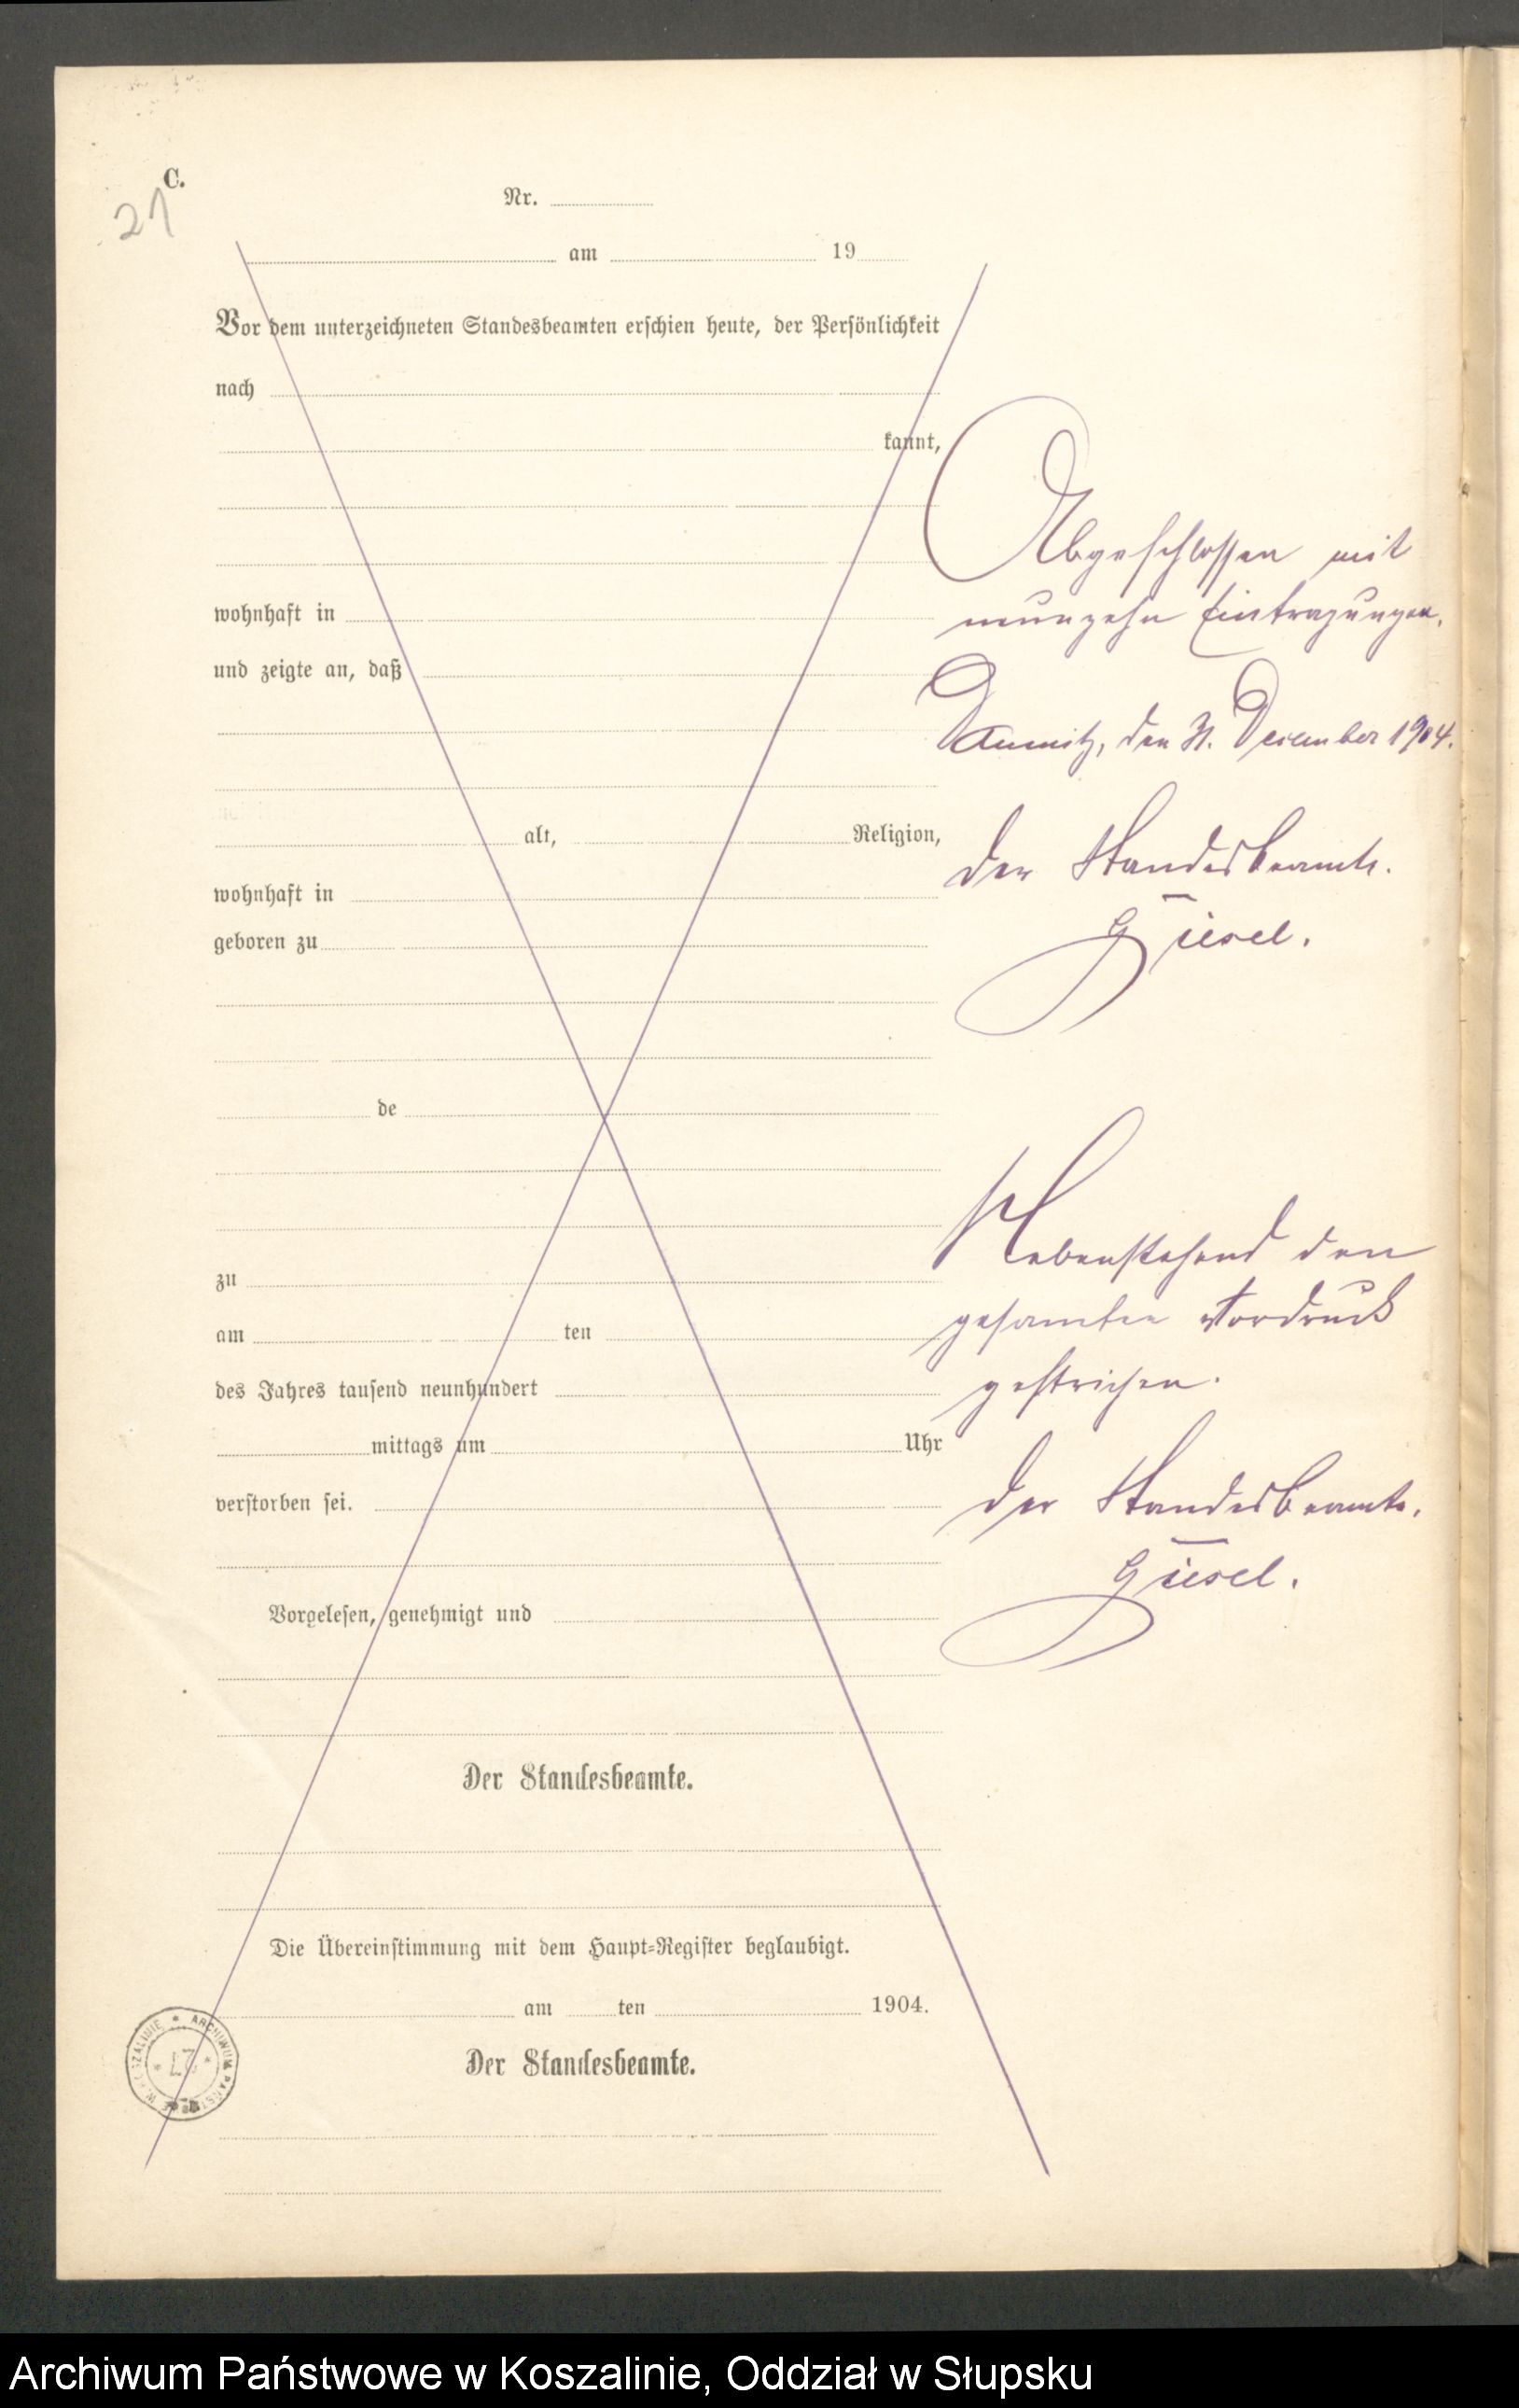 C.
21
Nr.
am 19
Vor dem unterzeichneten Standesbeamten erschien heute, der Persönlichkeit
nach
kannt,
wohnhaft in
und zeigte an, daß
alt, Religion,
wohnhaft in
geboren zu
de
zu
am ten
des Jahres tausend neunhundert
mittags um Uhr
verstorben sei.
Vorgelesen, genehmigt und
Der Standesbeamte.
Die Übereinstimmung mit dem Haupt-Register beglaubigt.
am ten 1904.
Der Standesbeamte.
Abgeschlossen mit
neunzehn Eintragungen.
den 31. Dezember 1904.
Der Standesbeamte.
Giesel.
Nebenstehend den
gesamten Vordruck
gestrichen.
Der Standesbeamte.
Giesel.
Archiwum Państwowe w Koszalinie, Oddział w Słupsku